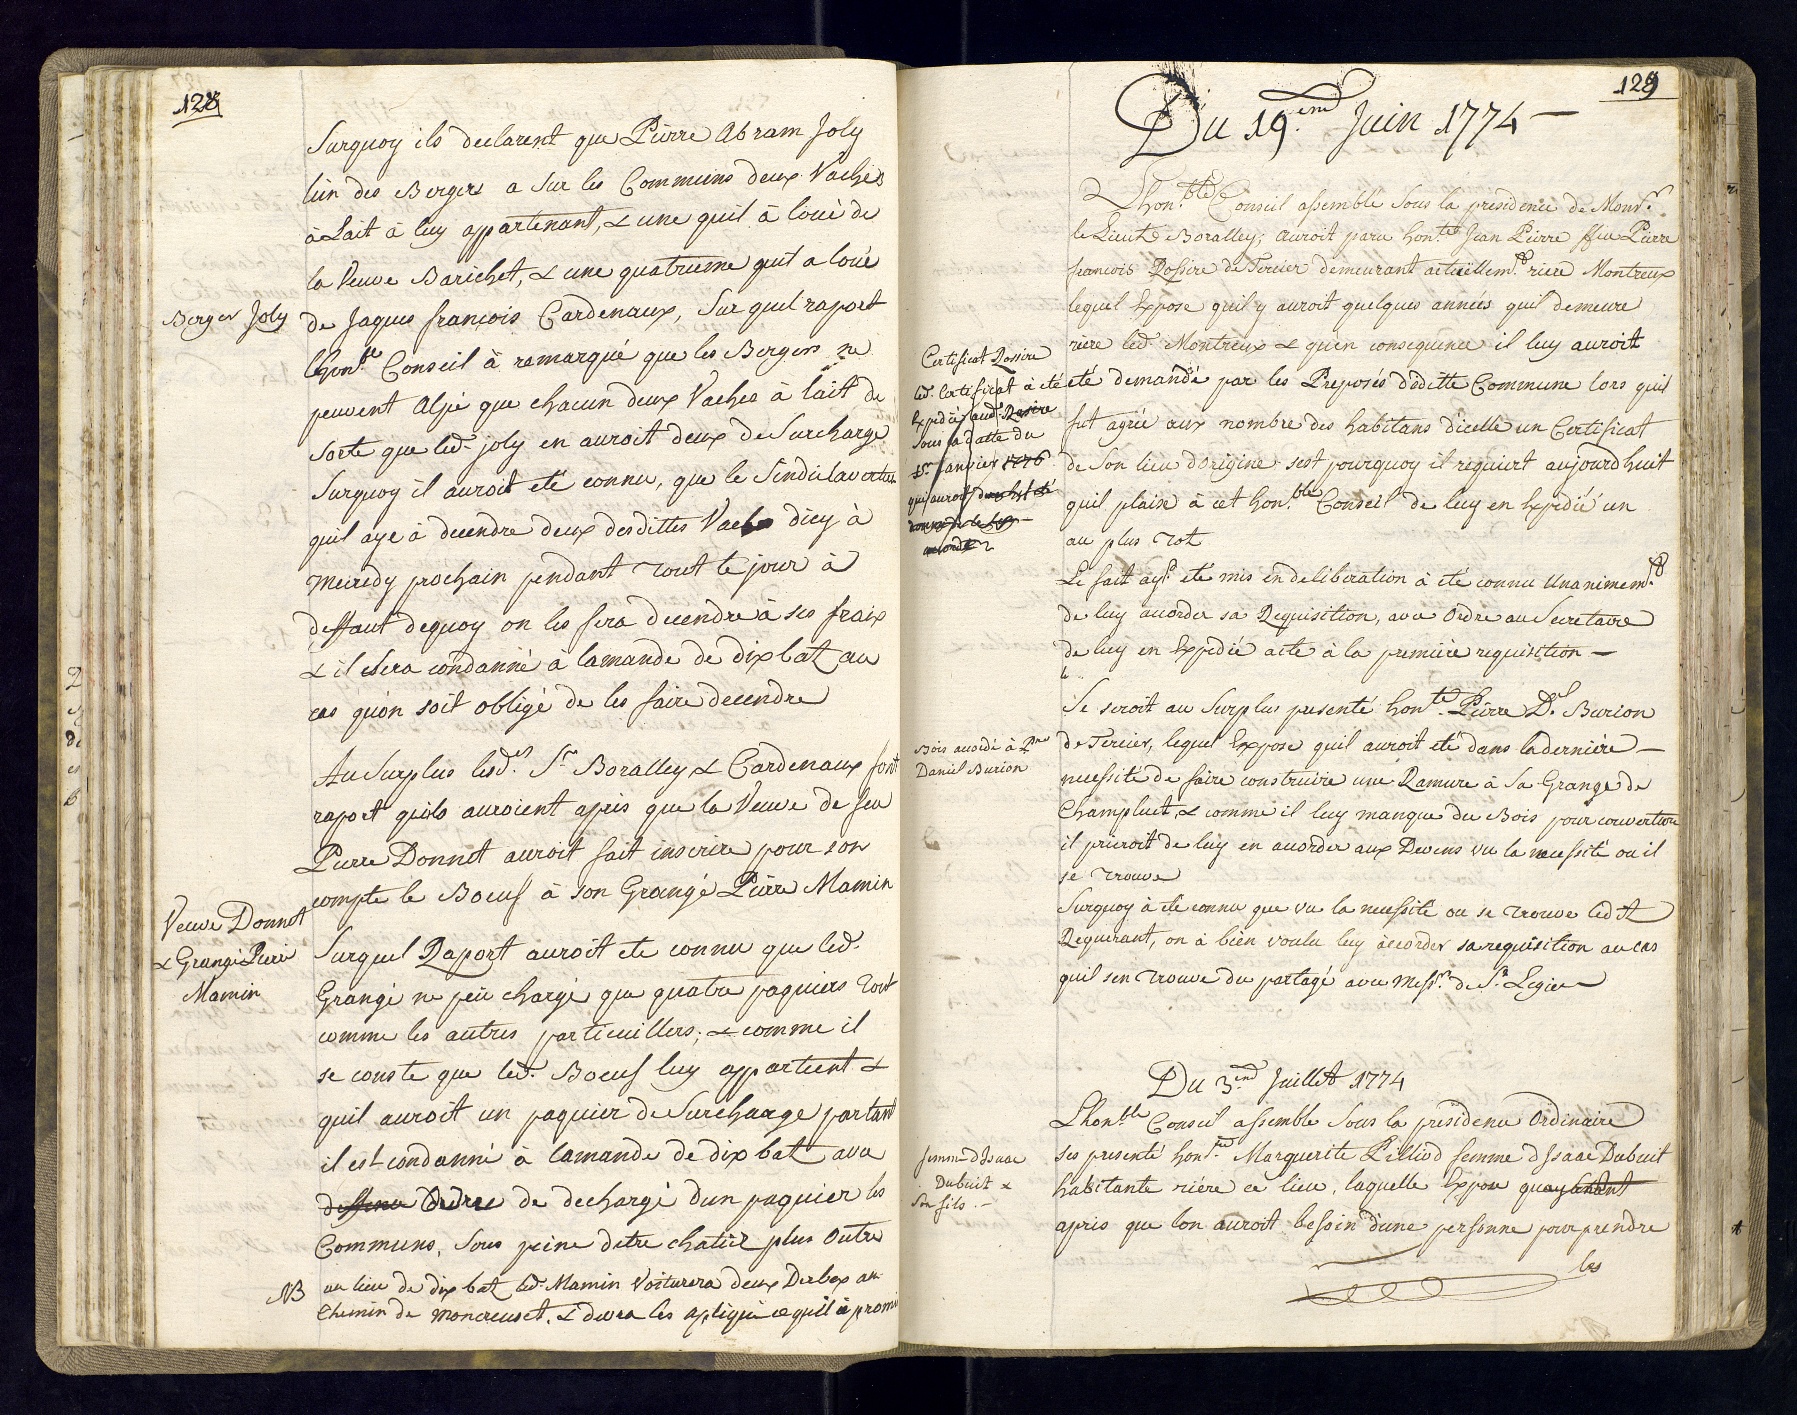 128
Surquoy ils declarent que Pierre Abram Joly
lun des Bergers a sur les Communs deux Vaches
à Lait à luy appartenant, & une quil à loué de
la Veuve Barichet, & une quatrieme quit a loué
Berger Joly
de Jaques françois Cardenaux, Sur quel raport
lhon.ble Conseil à remarqué que les Bergers ne
peuvent Alpé que chacun deux Vaches à lait de
sorte que led. joly en auroit deux de Surcharge
Surquoy il auroit eté connu, que le Sindic lavertira
quil aye à decendre deux desdittes Vaches dicy à
Mecredy prochain pendant tout le jour à
deffaut dequoy on les fera decendre à ses fraix
& il sera condanné à lamande de dix bat au
cas quón soit obligé de les faire decendre
Au Surplus lesd.s Sr. Boralley & Cardenaux font
raport quils auroient apris que la Veuve de feu
Pierre Donnet auroit fait inscrire pour son
compte le Boeuf à son Grangé Pierre Mamin
Veuve Donnet
& Grangé Pierre
Mamin
Surquel Raport auroit ete connu que led.
Grangé ne peu chargé que quatre paquiers tout
comme les autres particuillers; & comme il
se conste que led. Boeuf luy appartient &
quil auroit un paquier de Surcharge partant
il est condanné à lamande de dix bat avec
deffence Ordre de dechargé dun paquier les
Communs, Sous peine detre chatiéz plus Outre
NB au lieu de dix bat led. Mamin Voiturera deux Derbex au
Chemin de Moncreuset, & devra les apliqué ce quil à promis
129
Du 19.eme Juin 1774 —
Lhon.ble Conseil assemblé Sous la presidence de Mons.r
le Lieut Boralley; auroit paru hon.te Jean Pierre ffeu Pierre
françois Rossire de Tercier demeurant actuëllem.t riere Montreux
lequel Expose quil y auroit quelques années quil demeure
riere led. Montreux & quen consequence il luy auroit
Certificat Rossire
led. Certificat à eté
Expedié aud. Rosire
Sous la datte du
1r. Janvier 1776
qui auroit
eté demandé par les Preposés déditte Commune lors quil
fut agréé aux nombre des habitans dicelle un Certificat
de Son lieu dorigine sest pourquoy il requiert aujourdhuit
quil plaise à cet hon.ble Conseil de luy en Expedié un
au plus tot
Le fait ayt eté mis en deliberation à eté connu Unanimem.t
de luy acorder sa Requisition, avec Ordre au Secretaire
de luy en Expedié acte à la premiére requisition —
Bois acordé à Pre
Daniel Burion
Se seroit au Surplus presenté hon.te Pierre D.l Burion
de Tercier, lequel Expose quil auroit eté dans la derniére —
necessité de faire construire une Ramure à Sa Grange de
Champluet, & comme il luy manque du Bois pour couverture
il prieroit de luy en acorder aux Devens vu la necessité ou il
se trouve
Surquoy à ete connu que vu la necessité ou se trouve ledit
Requerant, on à bien voulu luy àccorder sa requisition au cas
quil sen trouve du partagé avec Mess.rs de St. Legier
Du 3.eme Juillet 1774
Lhon.ble Conseil assemblé Sous la présidence Ordinaire
femme dIsaac
Dubuit &
Son fils. —
ses presenté hon.te Marguerite Pilliod femme dIsaac Dubuit
habitante riére ce lieu, laquelle Expose
apris que lon auroit besoin dune personne pour prendre
les